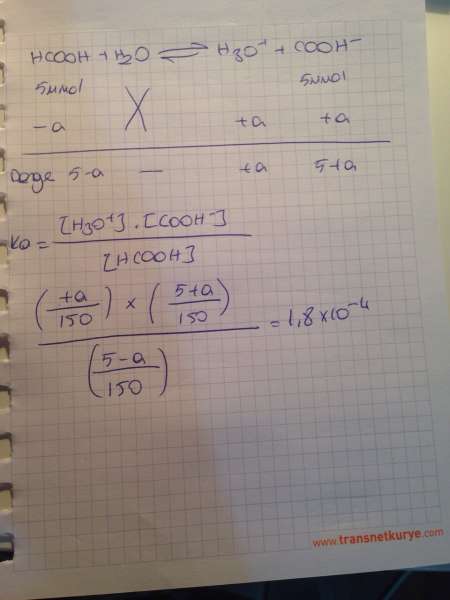 HCOOH + H2O ⇌ H3O+ + COOH-
5mmol 5mmol
-a X +a +a
Denge 5-a — +a 5+a
Ka = [H3O+] . [COOH-] / [HCOOH]
(+a/150) x (5+a/150) / (5-a/150) = 1,8 x 10-4
www.transnetkurye.com